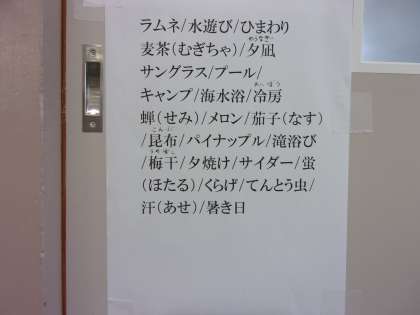 ラムネ/水遊び/ひまわり
麦茶(むぎちゃ)/夕凪
サングラス/プール/
キャンプ/海水浴/冷房
蝉(せみ)/メロン/茄子(なす)
/昆布/パイナップル/滝浴び
/梅干/夕焼け/サイダー/蛍
(ほたる)/くらげ/てんとう虫/
汗(あせ)/暑き日